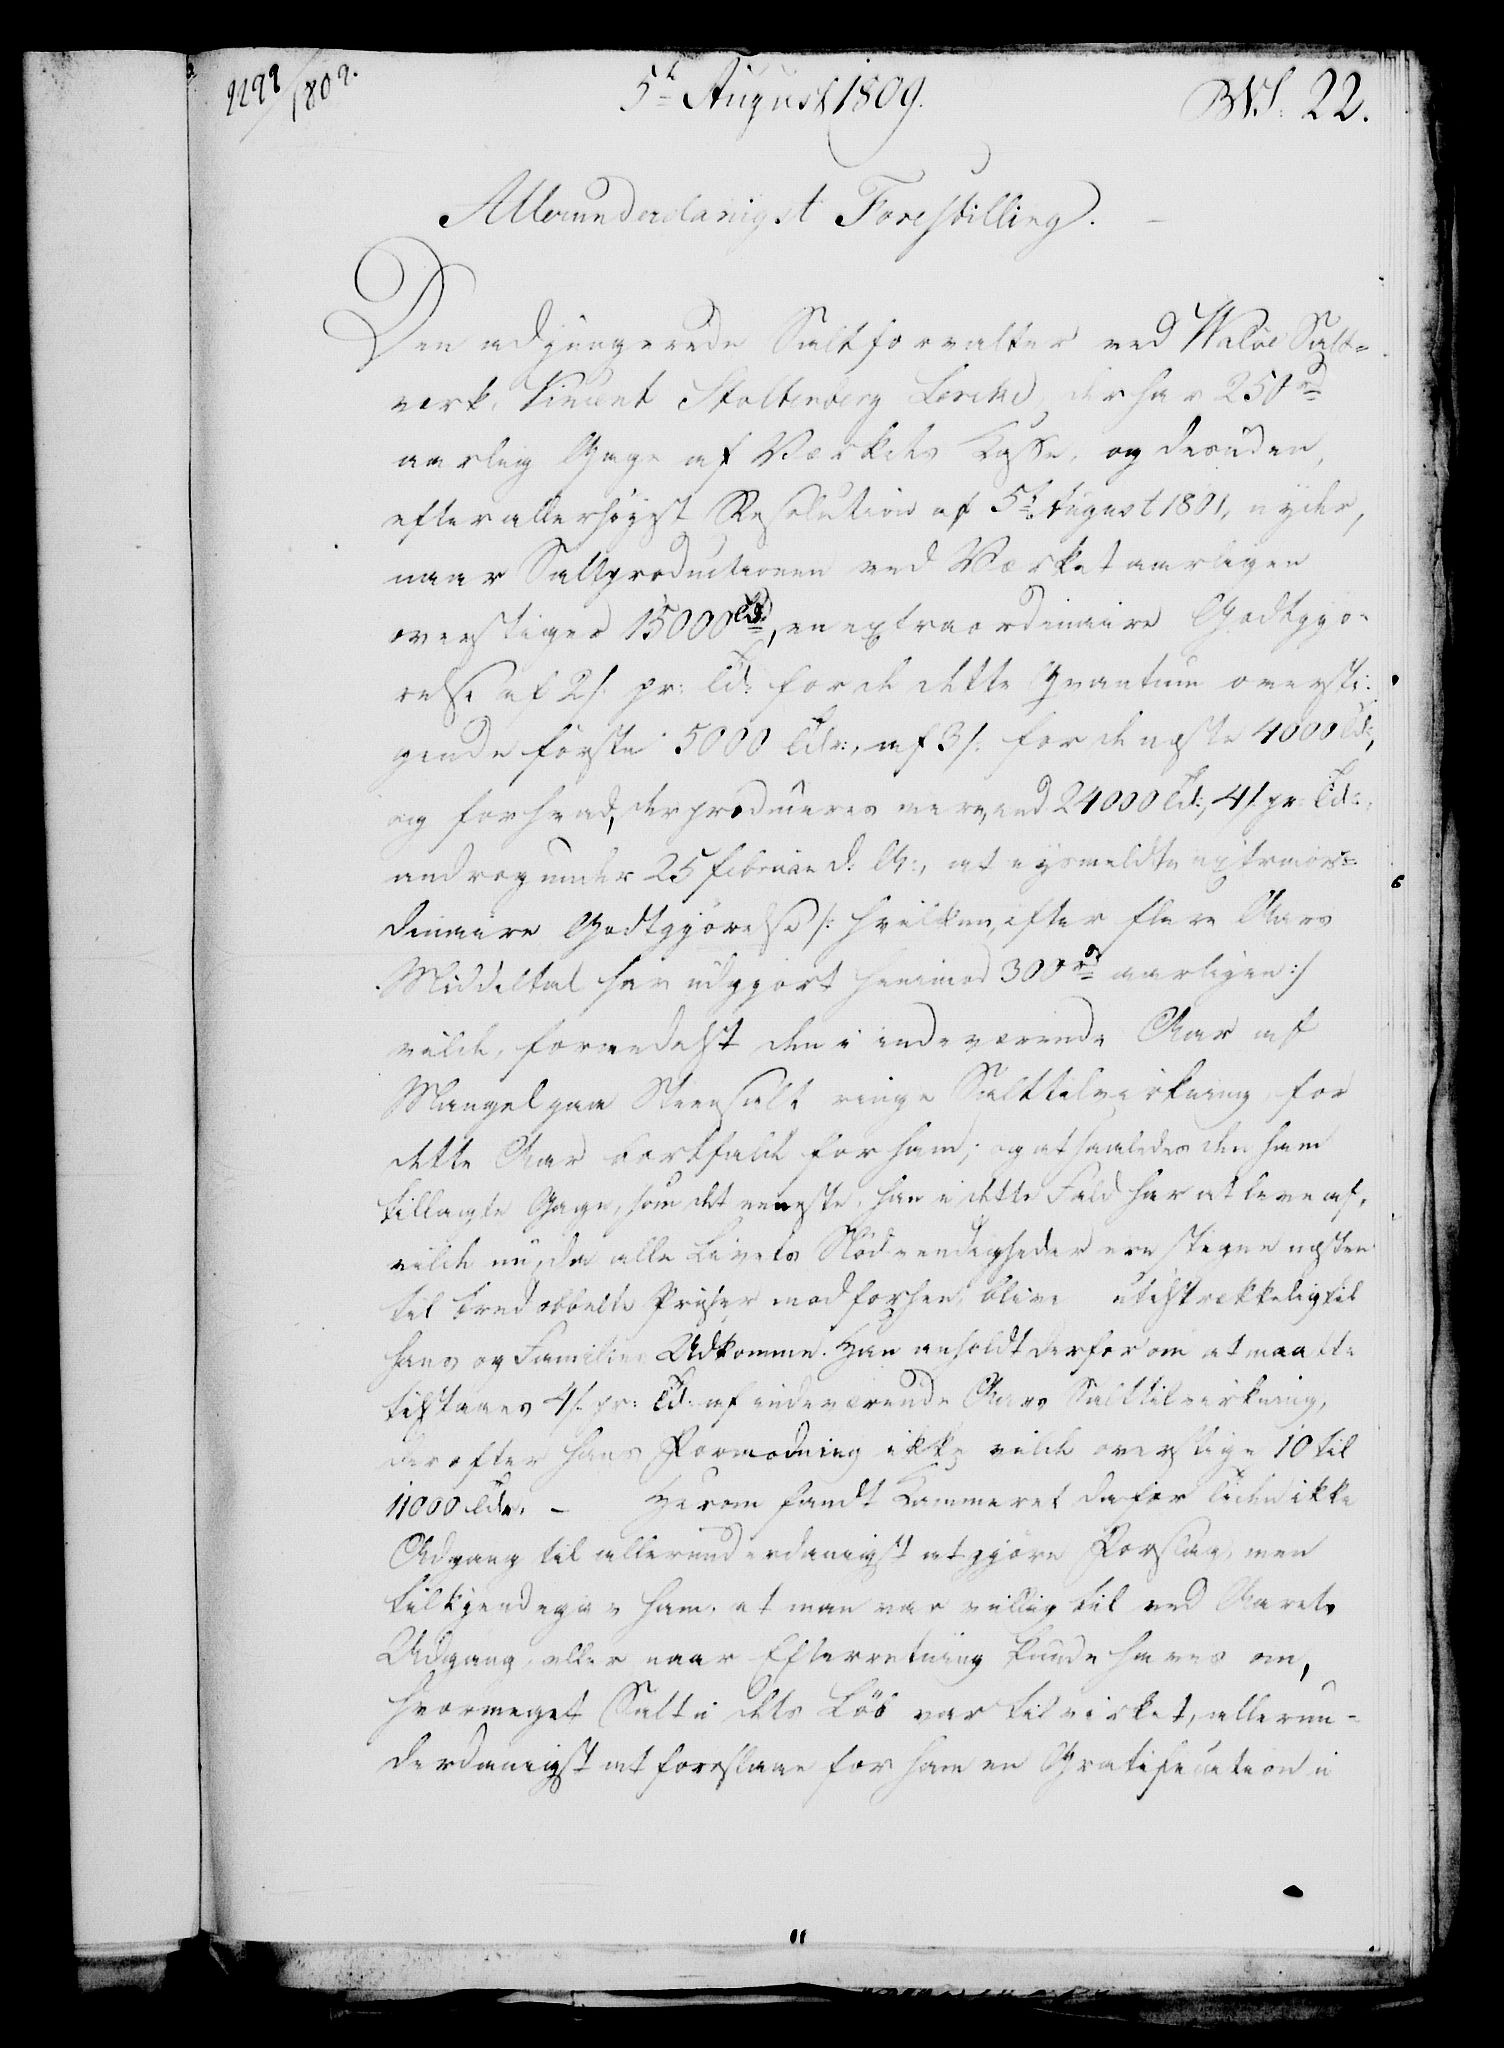 2299/1809.
5t August 1809.
No. 22.
Allerunderdanigst Forestilling.
Den adjungerede Saltforvalter ved Waløe Salt=
værk, Vincent Stoltenberg Lerche, der har 250 rd
aarlig Gage af Værkets Kasse, og desuden,
efter allerhøyst Resolution af 5t August 1801, nyder,
naar Saltproductionen ved Værket aarligen
overstiger 15000 Td., en extraordinaire Godtgjø-
relse af 2 s. pr: Td: for de dette Qvantum oversti-
gende første 5000 Tdr:, af 3 s. for de næste 4000 Td:,
og for hvad, der produceres over end 24000 Td:, 4 s. pr: Td:,
androg under 25 Februar d. A:, at ovenmeldte extraor=
dinaire Godtgjørelse /: hvilken, efter flere Aars
Middeltal har udgjort henimod 300 rd aarligen :/
vilde, formedelst den i indeværende Aar af
Mangel paa Steensalt ringe Salttilvirkning, for
dette Aar bortfalde for ham; og at saaledes den ham
tillagte Gage, som det eneste, han i dette Fald har at leve af,
vilde nu, da alle Livets Nødvendigheder ere stegne næsten
til tredobbelte Priser mod forhen, blive utilstrækkelig til
hans og Families Udkomme. Han anholdt derfor om at maatte
tilstaaes 4 s. pr: Td: af indeværende Aars Salttilvirkning,
der efter hans Formodning ikke vilde overstige 10 til
11000 Tdr. – Herom fandt Kammeret da for Tiden ikke
Adgang til allerunderdanigst at gjøre Forslag, men
tilkjendegav ham, at man var villig til ved Aarets
Udgang, eller naar Efterretning kunde haves om,
hvormeget Salt i dets Løb var tilvirket, allerun-
derdanigst at foreslaae for ham en Gratification i